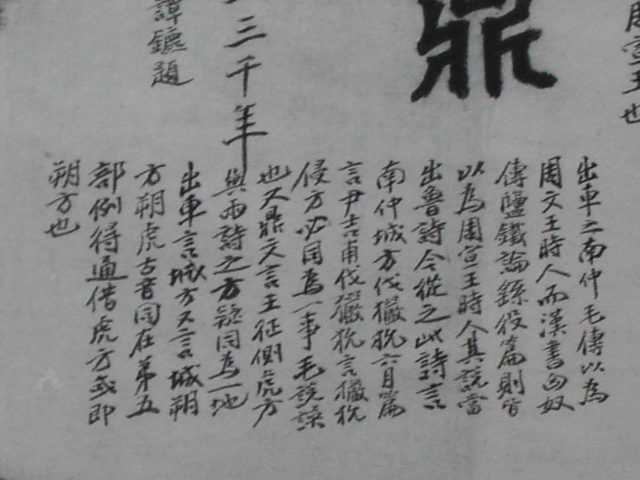 周宣王也
鼎
三千年
諱鑪題
出車之南仲毛傳以為
周文王時人而漢書匈奴
傳鹽鐵論繇役篇則皆
以為周宣王時人其說當
出魯詩今從之此詩言
南仲城方伐玁狁六月篇
言尹吉甫伐玁狁言玁狁
侵方必同為一事毛說誤
也又鼎文言王征側虎方
與兩詩之方疑同為一地
出車言城方又言城朔
方朔虎古音同在第五
部例得通借虎方或即
朔方也